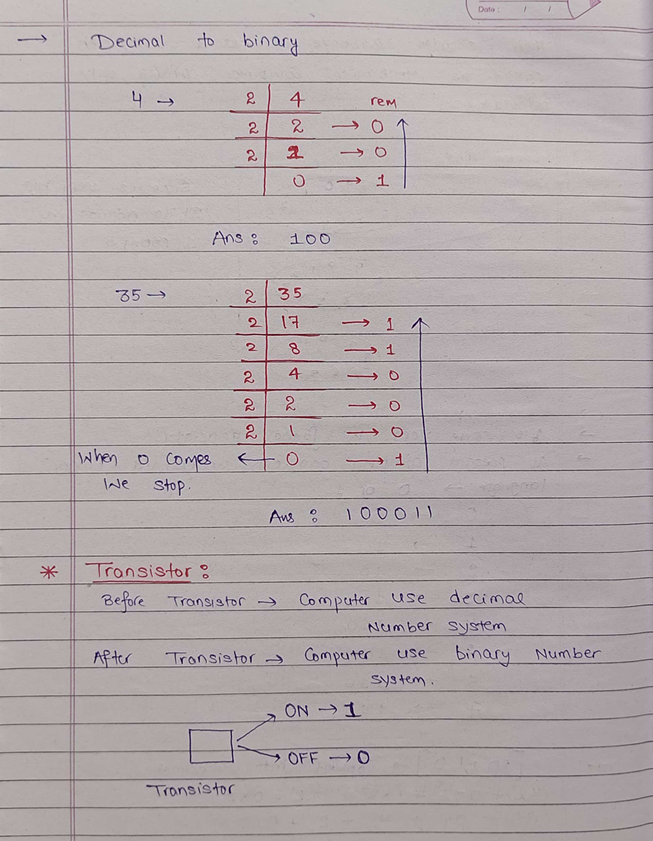 Date : / /
→ Decimal to binary
4 → 2 4 rem
2 2 → 0
2 1 → 0
0 → 1
Ans : 100
35 → 2 35
2 17 → 1
2 8 → 1
2 4 → 0
2 2 → 0
2 1 → 0
When 0 comes ← 0 → 1
We stop.
Ans : 100011
* Transistor :
Before Transistor → Computer use decimal
Number system
After Transistor → Computer use binary Number
system.
ON → 1
OFF → 0
Transistor